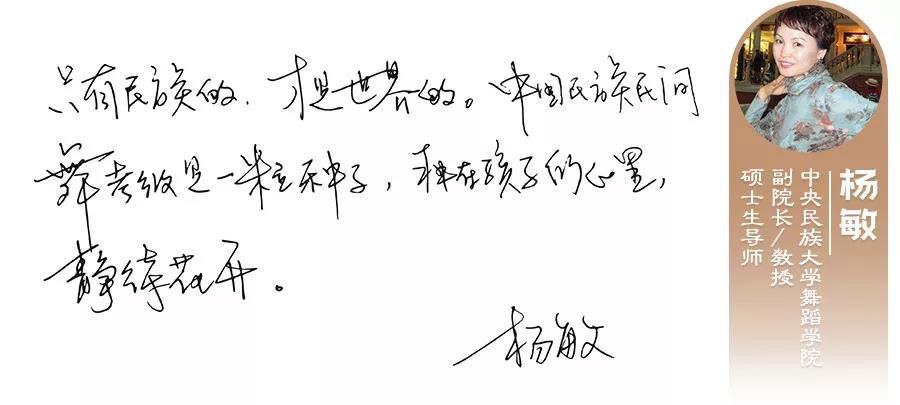 只有民族的,才是世界的。中国民族民间
舞考级是一粒种子,种在孩子的心里,
静待花开。
杨敏
杨敏
中央民族大学舞蹈学院
副院长/教授
硕士生导师